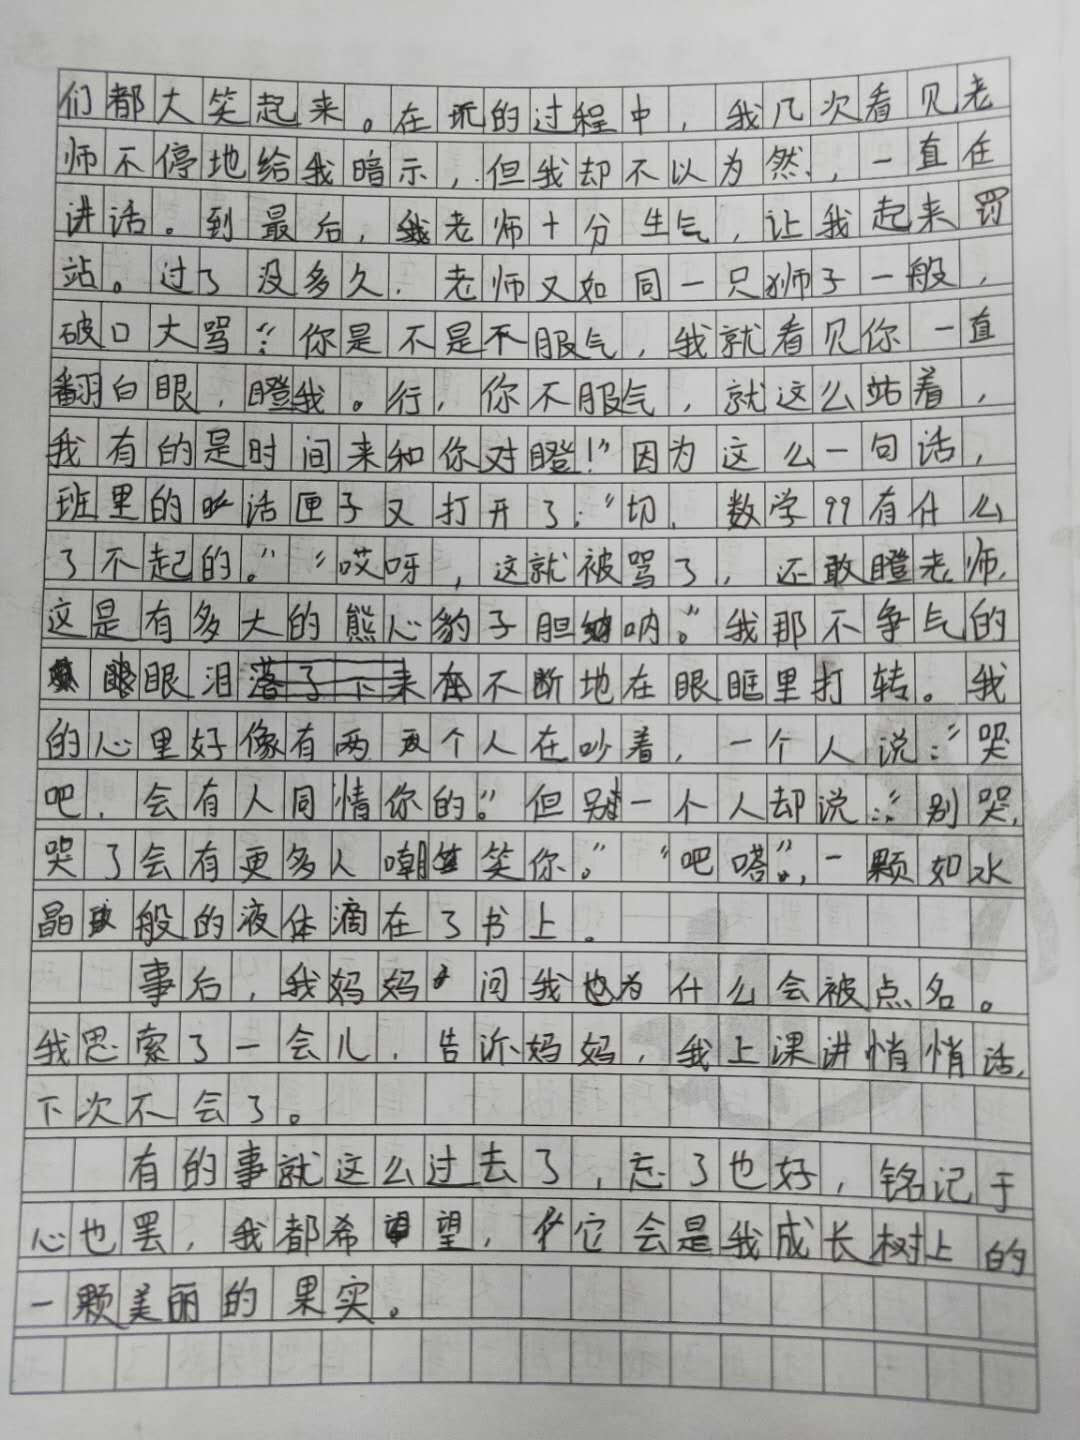 们都大笑起来。在玩的过程中，我几次看见老
师不停地给我暗示，但我却不以为然，一直在
讲话。到最后，老师十分生气，让我起来罚
站。过了没多久，老师又如同一只狮子一般，
破口大骂：“你是不是不服气，我就看见你一直
翻白眼，瞪我。行，你不服气，就这么站着，
我有的是时间来和你对瞪！”因为这么一句话，
班里的话匣子又打开了：“切，数学99有什么
了不起的。”“哎呀，这就被骂了，还敢瞪老师，
这是有多大的熊心豹子胆呐。”我那不争气的
眼泪不断地在眼眶里打转。我
的心里好像有两个人在吵着，一个人说：“哭
吧，会有人同情你的。”但另一个人却说：“别哭，
哭了会有更多人嘲笑你。”“吧嗒”，一颗如水
晶般的液体滴在了书上。
事后，我妈妈问我为什么会被点名。
我思索了一会儿，告诉妈妈，我上课讲悄悄话，
下次不会了。
有的事就这么过去了，忘了也好，铭记于
心也罢，我都希望，它会是我成长树上的
一颗美丽的果实。